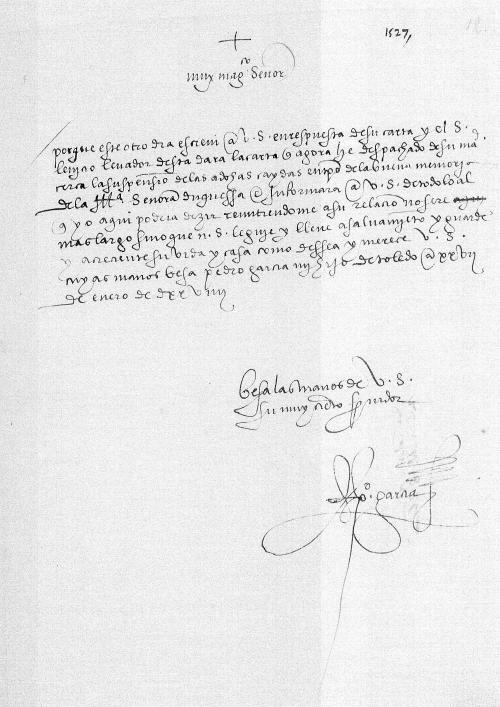 1527,
muy mag.co Señor
porque este otro dia escreui @ v. s. en respuesta de su carta y el S.
leuador desta dara la carta q agora he despachado de su
cerca la suspensio de las cosas caydas en tpo de la buena memoria
de la Ill.a Señora duquessa @ Informara @ v. s. de todo lo al
q yo aqui podria dezir remitiendome a su relacio no sere
mas largo sino que n. s. le guie y lleue a saluamieto y guarde
y acreciente su vida y casa como dessea y merece V. S.
cuyas manos besa pedro garcia mi hijo de toledo @ xx vij
de enero de dxx vij
besa las manos de V. S.
su muy cierto s uidor
po. garcia